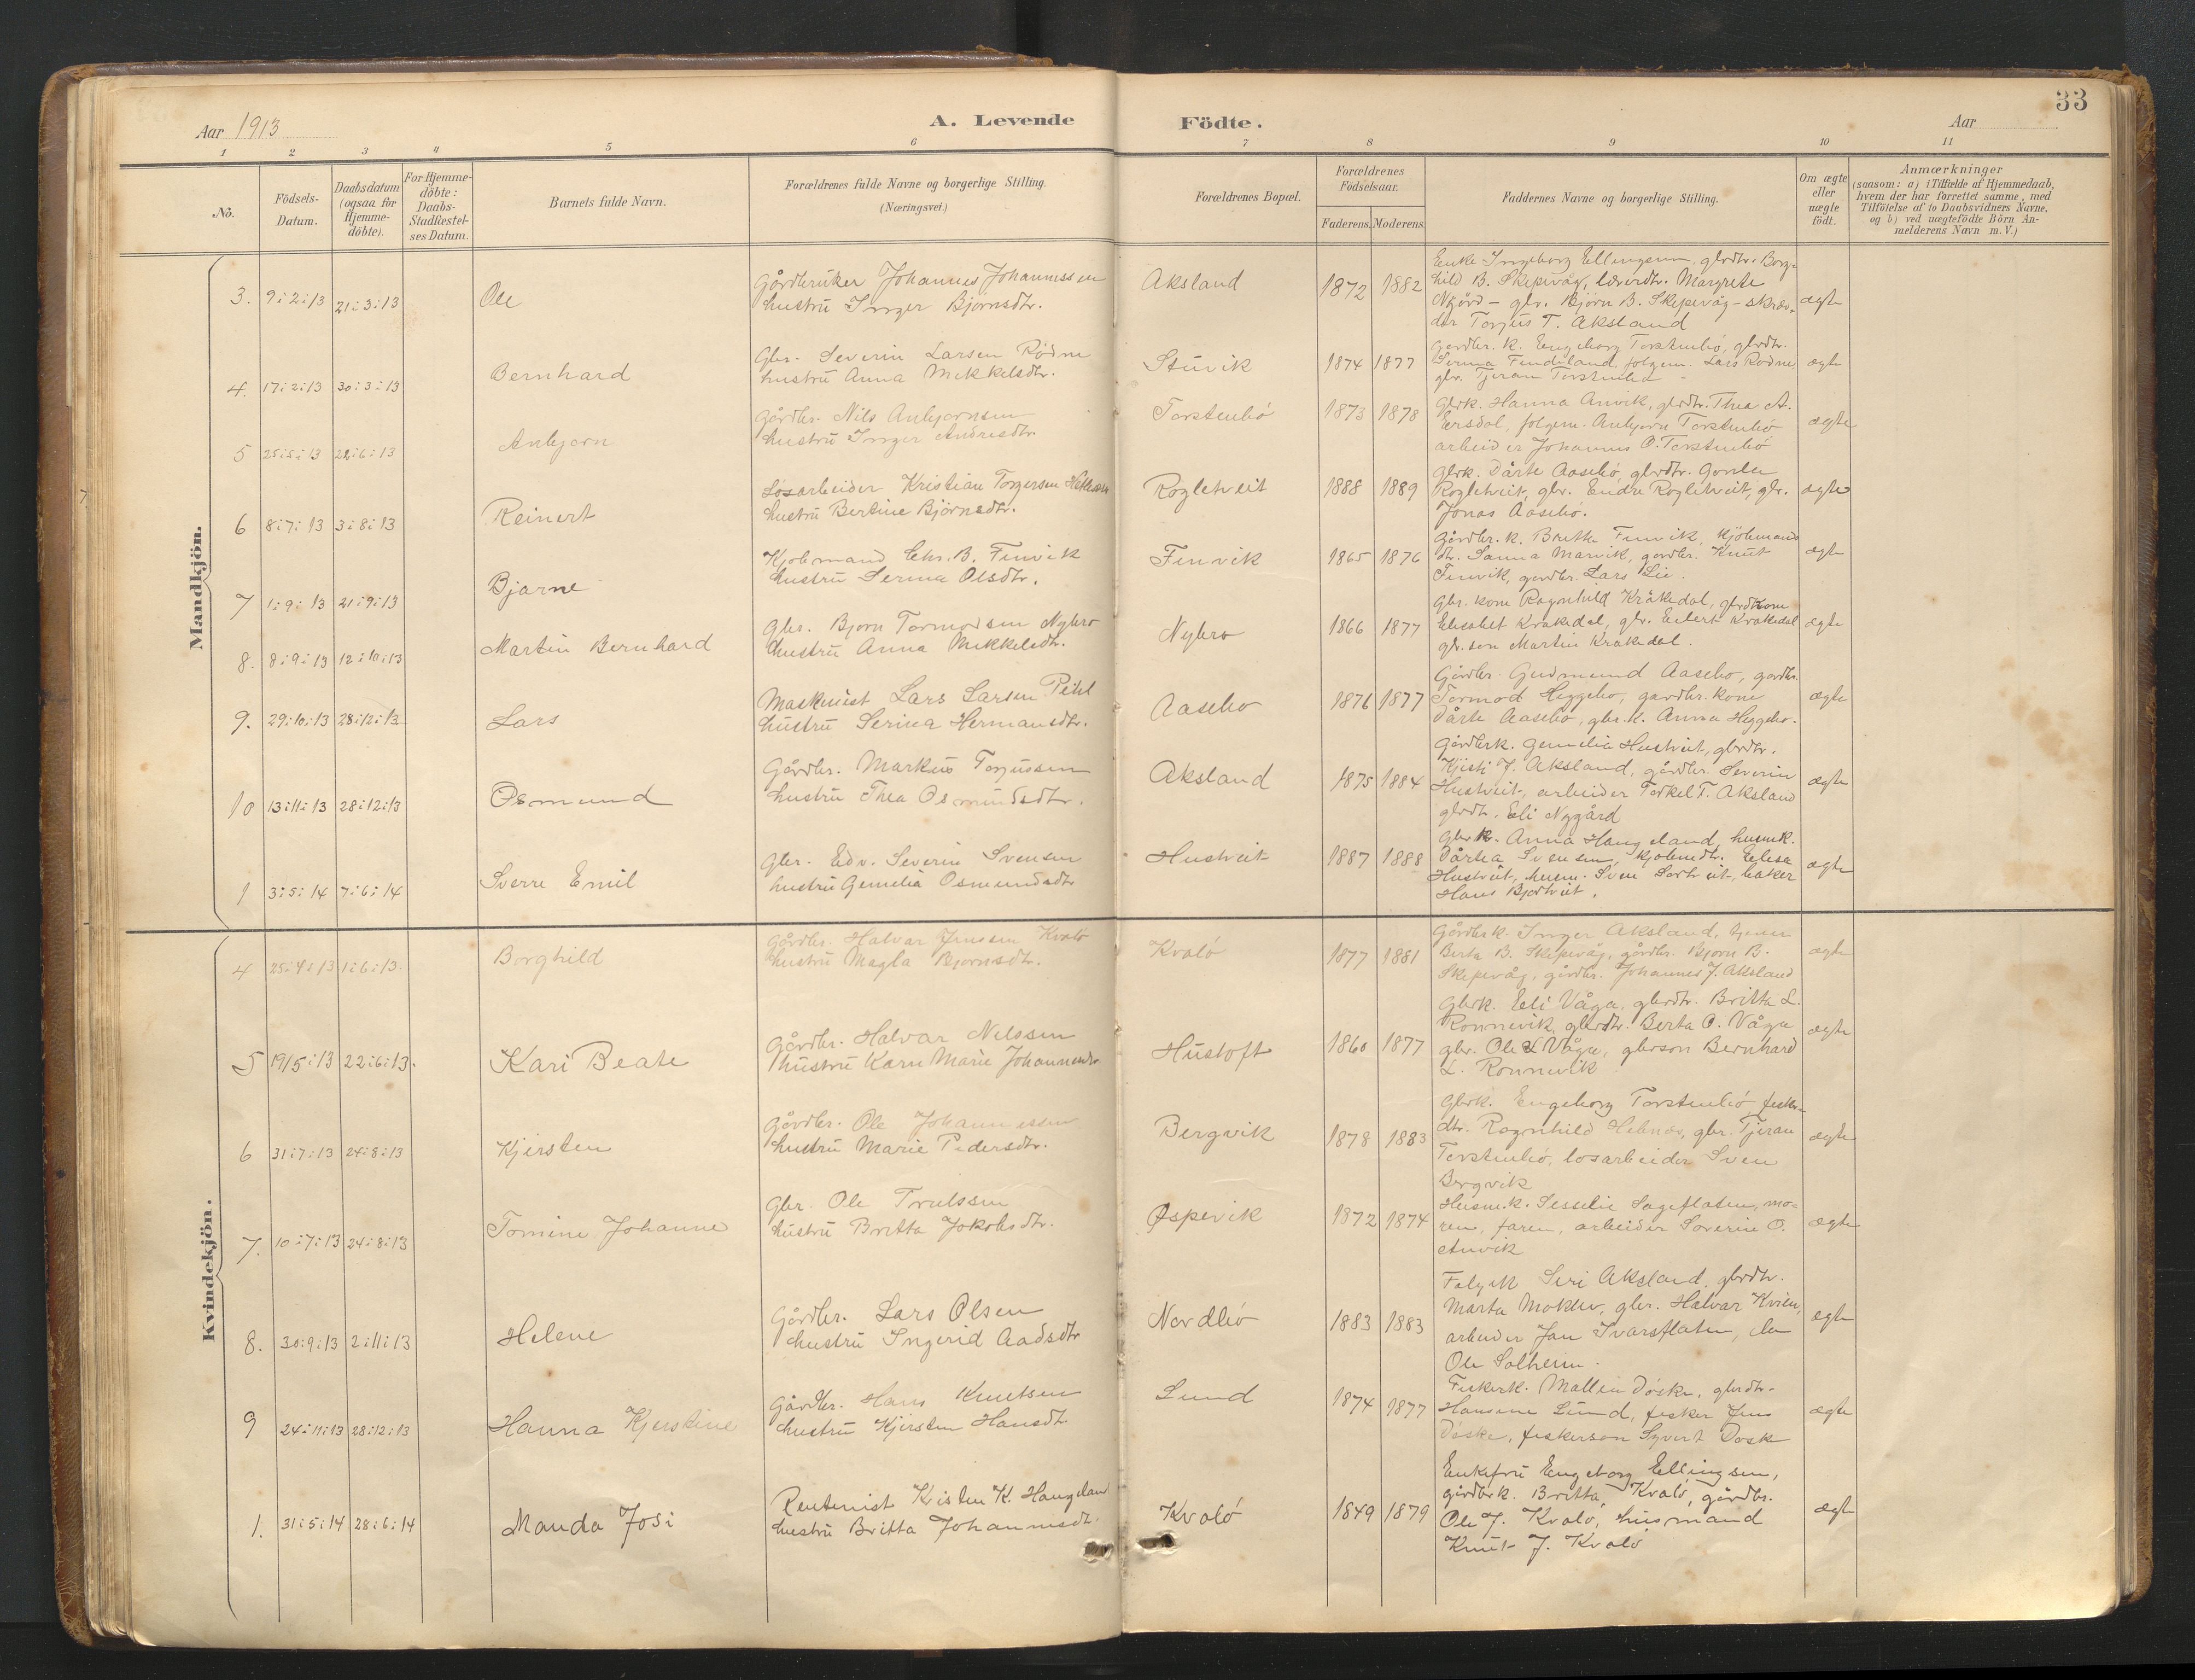 33
Aar 1913
A. Levende
Födte.
Aar
1 2 3 4 5 6 7 8 9 10 11
No.
Födsels-
Datum.
Daabsdatum
(ogsaa for
Hjemme-
döbte).
For Hjemme-
döbte:
Daabs-
Stadfæstel-
ses Datum.
Barnets fulde Navn.
Forældrenes fulde Navne og borgerlige Stilling.
(Næringsvei.)
Forældrenes Bopæl.
Forældrenes
Födselsaar.
Faderens. Moderens.
Faddernes Navne og borgerlige Stilling.
Om ægte
eller
uægte
födt.
Anmærkninger
(saasom: a) i Tilfælde af Hjemmedaab,
hvem der har forrettet samme, med
Tilföielse af to Daabsvidners Navne,
og b) ved uægtefödte Börn An-
melderens Navn m. V.)
Mandkjön.
3. 9:2:13 21:3:13
Ole
Gårdbruker Johannes Johannessen
hustru Inger Bjornsdtr.
Aksland
1872 1882
Enke Ingeborg Ellingsen, gbrdtr. Borg-
hild B. Skepevåg, lærerdtr. Margrete
Nygård - gbr. Bjørn B. Skepevåg - skræd-
der Torjus T. Aksland
ægte
4. 17:2:13 30:3:13
Bernhard
Gbr. Severin Larsen Rødne
hustru Anna Mikkelsdtr.
Stuvik
1874 1877
Gardbr. k. Engeborg Torstenbó, gbrdtr.
folgem. Lars Rødne,
gbr. Tjeran Torstenbó
ægte
5 25:5:13 22:6:13
Anbjorn
Gårdbr. Nils Anbjornsen
hustru Inger Andresdtr.
Torstenbó
1873 1878
gbrk. Hanna Anvik, gbrdtr. Thea A.
Eersdal, folgem. Anbjorn Torstenbó
arbeider Johannes O. Torstenbó
ægte
6 8:7:13 3:8:13
Reinert
Løsarbeider Kristian Torgersen
hustru Bertine Björnsdtr.
Rogletveit
1888 1889
gbrk. Dårte Aasebó, gbrdtr. Gorda
Rogletveit, gbr. Endre Rogletveit, gbr.
Jonas Aasebo.
ægte
7 1:9:13 21:9:13
Bjarne
Kjobmand Chr. B. Finvik
hustru Serina Olsdtr.
Finvik
1865 1876
Gårdbr. k. Britte Finvik, Kjöbmands
dtr. Sanna Marvik, gardbr. Knut
Finvik, gardbr. Lars Lie.
ægte
8. 8:9:13 12:10:13
Martin Bernhard
Gbr. Bjorn Tormodsen Nybro
hustru Anna Mikkelsdtr.
Nybro
1866 1877
Gbr. kone Ragnhild Kråkedal, gbrdkone
Elisabet Krakedal, gbr. Eilert Krakedal
gbr. son Martin Krakedal.
ægte
9. 29:10:13 28:12:13
Lars
Maskinist Lars Larsen Pihl
hustru Serina Hermansdtr.
Aasebo
1876 1877
Gårdbr. Gudmund Aasebo, gardbr.
Tormod Heggebo, gardbr. kone
Dårte Aasebo, gbr. k. Anna Heggebo.
ægte
10 13:11:13 28:12:13
Osmund
Gårdbr. Markus Torjussen
hustru Thea Osmundsdtr.
Aksland
1875 1884
Gårdbrk. Gemelia Hustveit, gbrdtr.
Kjisti J. Aksland, gårdbr. Severin
Hustveit, arbeider Torkel T. Aksland
gbrdtr. Eli Nygård
ægte
1 3:5:14 7:6:14
Sverre Emil
Gbr. Edv. Severin Svensen
hustru Gemelia Osmundsdtr
Hustveit
1887 1888
Gbr k. Anna Haugeland, husmk.
Dårtea Svensen, kjobmdtr. Elisa
Hustveit, husm. Sven Sortveit, baker
Hans Bjortveit.
ægte
Kvindekjön.
4 25:4:13 1:6:13.
Borghild
Gårdbr. Halvar Jenssen Kvaló
hustru Magla Bjornsdtr.
Kvaló
1877 1881
Gårdbrk. Inger Aksland,
Berta B. Skepevåg, gårdbr. Bjorn B.
Skepevåg, gårdbr. Johannes J. Aksland
ægte
5 19/5:13 22:6:13.
Kari Beate
Gårdbr. Halvar Nilssen
hustru Karn Marie Johannesdtr
Hustoft
1860 1877
Gbrk. Eli Våga, gbrdtr. Britta L.
Ronnevik, gbrdtr. Berta O. Våga
gbr. Ole Våge, gbrson Bernhard
L. Ronnevik
ægte
6 31:7:13 24:8:13
Kjirsten
Gårdbr. Ole Johannessen
hustru Marie Pedersdtr.
Bergvik
1878 1883
Gbrk. Engeborg Torstenbó, fisker-
dtr. Ragnhild Hebnes, gbr. Tjeran
Torstenbó, losarbeider Sven
Bergvik
ægte
7. 10:7:13 24:8:13
Tomine Johanne
Gbr. Ole Trulssen
hustru Britta Jokobsdtr.
Øspevik
1872 1874
Husm. k. Sesselie Sageflaten, mo-
ren, faren, arbeider Soverin O.
Anvik
ægte
8. 30:9:13 2:11:13
Helene
Gårdbr. Lars Olsen
hustru Ingerid Aadsdtr
Nordbó
1883 1883
Folgek Siri Aksland, gbrdtr.
Marta Moklev, gbr. Halvar Kvien,
arbeider Jan Ivarsflaten,
Ole Solheim.
ægte
9 24:11:13 28:12:13
Hanna Kjerstine
Gårdbr. Hans Knutsen
hustru Kjirsten Hansdtr
Lund
1874 1877
Fiskerk. Mallen Döske, gbrdtr.
Hansine Lund, fisker Jens
Döske, fiskerson Syvert Dosk
ægte
1. 31:5:14 28:6:14
Manda Josi
Rentenist Kristen K. Haugeland
hustru Britta Johannesdtr.
Kvaló
1849 1879
Enkefru Engeborg Ellingsen,
gårdbrk. Britta Kvaló, gårdbr.
Ole J. Kvaló, husmand
Knut J. Kvaló
ægte